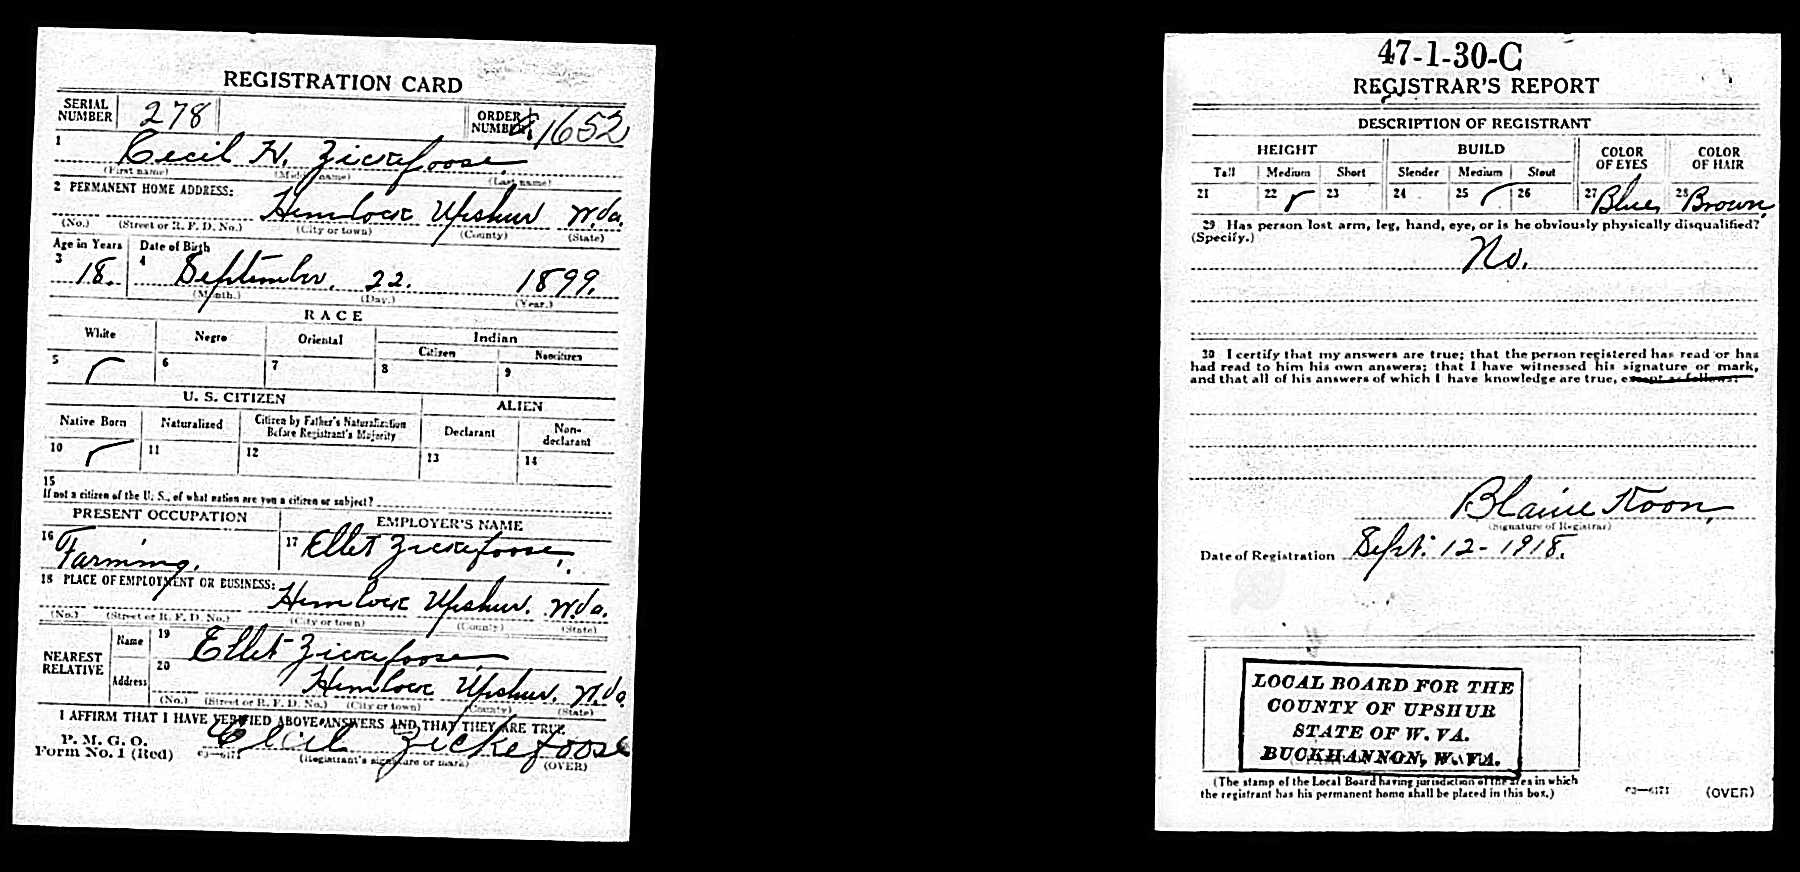 REGISTRATION CARD
SERIAL NUMBER 278 ORDER NUMBER 1652
1 Cecil H. Zickefoose
(First name) (Middle name) (Last name)
2 PERMANENT HOME ADDRESS:
Hemlock Upshur W.Va.
(No.) (Street or R. F. D. No.) (City or town) (County) (State)
Age in Years Date of Birth
3 18. 4 September. 22. 1899.
(Month.) (Day.) (Year.)
RACE
White Negro Oriental Indian
Citizen Noncitizen
5 6 7 8 9
U. S. CITIZEN ALIEN
Native Born Naturalized Citizen by Father's Naturalization Before Registrant's Majority Declarant Non-declarant
10 11 12 13 14
15
If not a citizen of the U. S., of what nation are you a citizen or subject?
PRESENT OCCUPATION EMPLOYER'S NAME
16 Farming. 17 Ellet Zickefoose.
18 PLACE OF EMPLOYMENT OR BUSINESS:
Hemlock Upshur. W.Va.
(No.) (Street or R. F. D. No.) (City or town) (County) (State)
NEAREST RELATIVE
Name 19 Ellet Zickefoose
Address 20 Hemlock Upshur. W.Va
(No.) (Street or R. F. D. No.) (City or town) (County) (State)
I AFFIRM THAT I HAVE VERIFIED ABOVE ANSWERS AND THAT THEY ARE TRUE
P. M. G. O.
Form No. 1 (Red) 03—6171 Cecil Zickefoose
(Registrant's signature or mark) (OVER)
47-1-30-C
REGISTRAR'S REPORT
DESCRIPTION OF REGISTRANT
HEIGHT BUILD COLOR OF EYES COLOR OF HAIR
Tall Medium Short Slender Medium Stout
21 22 23 24 25 26 27 Blue 28 Brown.
29 Has person lost arm, leg, hand, eye, or is he obviously physically disqualified?
(Specify.)
No.
30 I certify that my answers are true; that the person registered has read or has
had read to him his own answers; that I have witnessed his signature or mark,
and that all of his answers of which I have knowledge are true, except as follows:
Blaine Koon,
(Signature of Registrar)
Date of Registration Sept. 12 - 1918.
LOCAL BOARD FOR THE
COUNTY OF UPSHUR
STATE OF W. VA.
BUCKHANNON, W. VA.
(The stamp of the Local Board having jurisdiction of the area in which
the registrant has his permanent home shall be placed in this box.)
03—6171 (OVER)